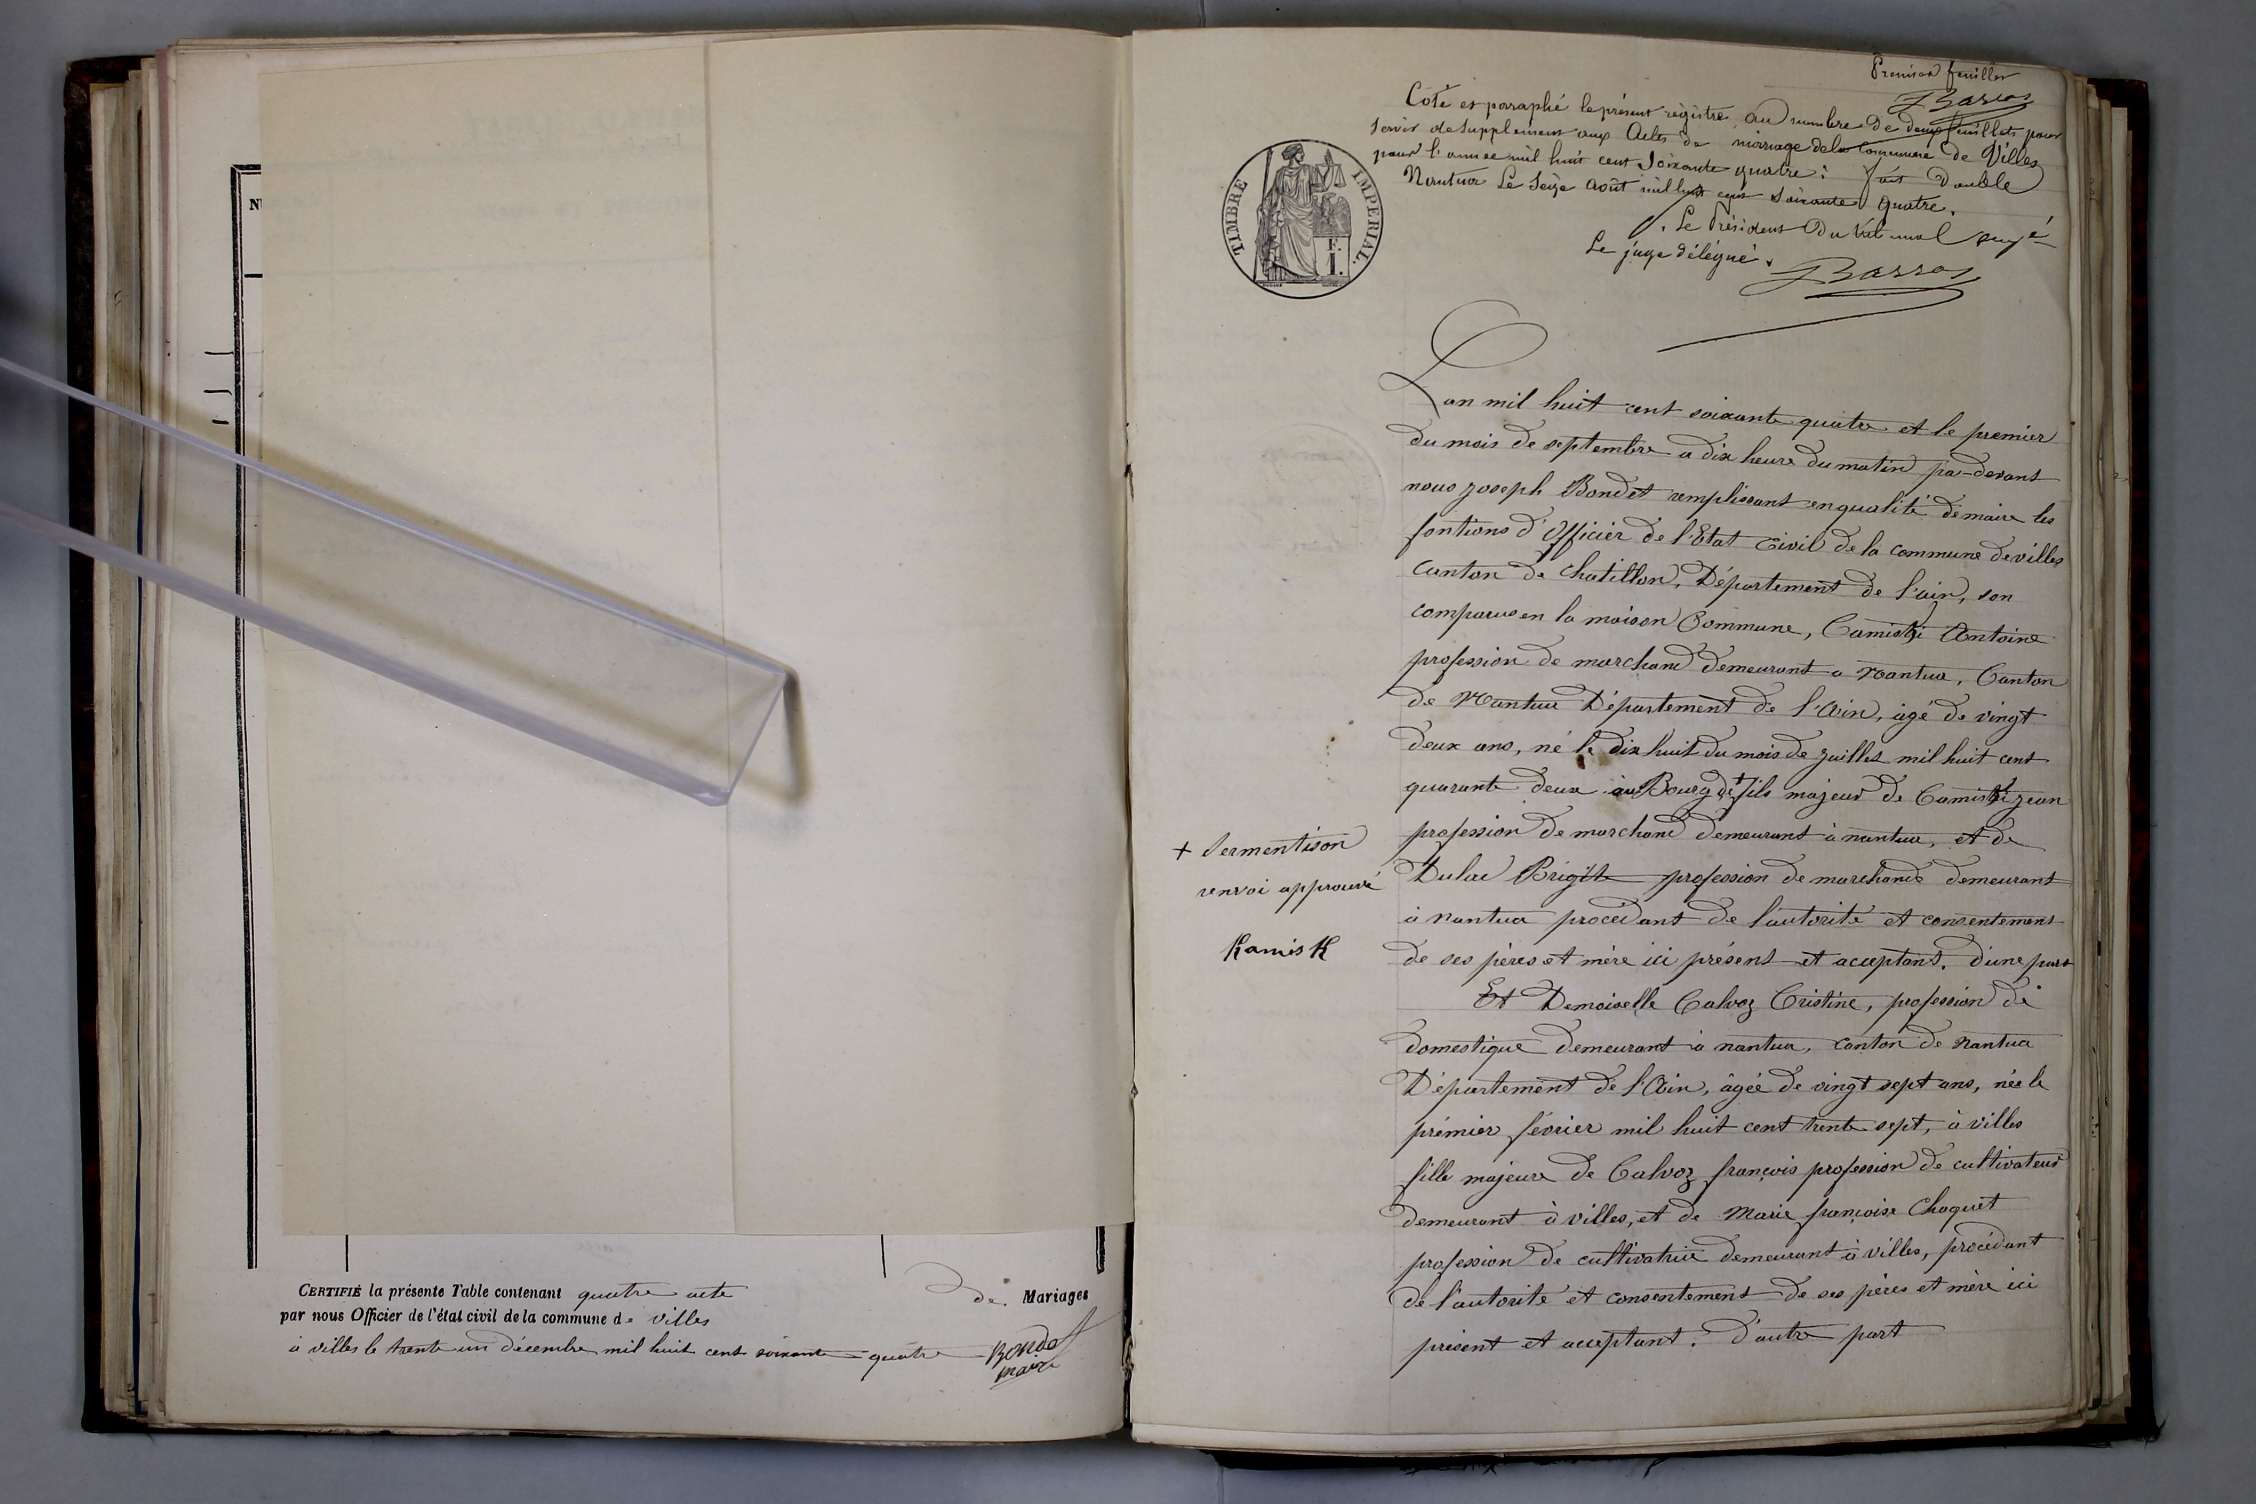 N
CERTIFIÉ la présente Table contenant quatre acte de Mariages
par nous Officier de l'état civil de la commune de villes
à villes le trente un décembre mil huit cent soixante quatre Bondet
maire
Premier feuillet
Barros
Coté et paraphé le présent régistre au nombre de deux feuillets pour
servir de supplément aux Actes de mariage de la Commune de Villes
pour l'année mil huit cent soixante quatre : fait Double
Nantua Le seize août mil huit cent soixante quatre.
Le Président Du tribunal
Le juge délégué.
Barros
TIMBRE IMPERIAL.
F.
I.
L'an mil huit cent soixante quatre et le premier
du mois de septembre a dix heure du matin par-devant
nous joseph Bondet remplissant en qualité de maire les
fontions d'Officier de l'Etat Civil de la commune de villes
canton de chatillon, Département de l'ain, son
comparus en la maison Commune, Camiski Antoine
profession de marchand demeurant a nantua, Canton
de Nantua Département de l'Ain, âgé de vingt
deux ans, né le dix huit du mois de juillet mil huit cent
quarante deux au Bourg de + fils majeur de Camiski jean
profession de marchand demeurant à nantua, et de
+ Sermentison
renvoi approuvé
Kamis K
Dulac Brigite profession de marchande demeurant
à nantua procédant de l'autorité et consentement
de ses pères et mère ici présent et acceptant. d'une part
Et Demoiselle Calvoz Cristine, profession de
domestique demeurant à nantua, canton de Nantua
Département de l'Ain, âgée de vingt sept ans, née le
prémier février mil huit cent trente sept, à villes
fille majeure de Calvoz françois profession de cultivateur
demeurant à villes, et de Marie françoise Choquet
profession de cultivatrice demeurant à villes, procédant
de l'autorité et consentement de ses pères et mère ici
présent et acceptant. d'autre part